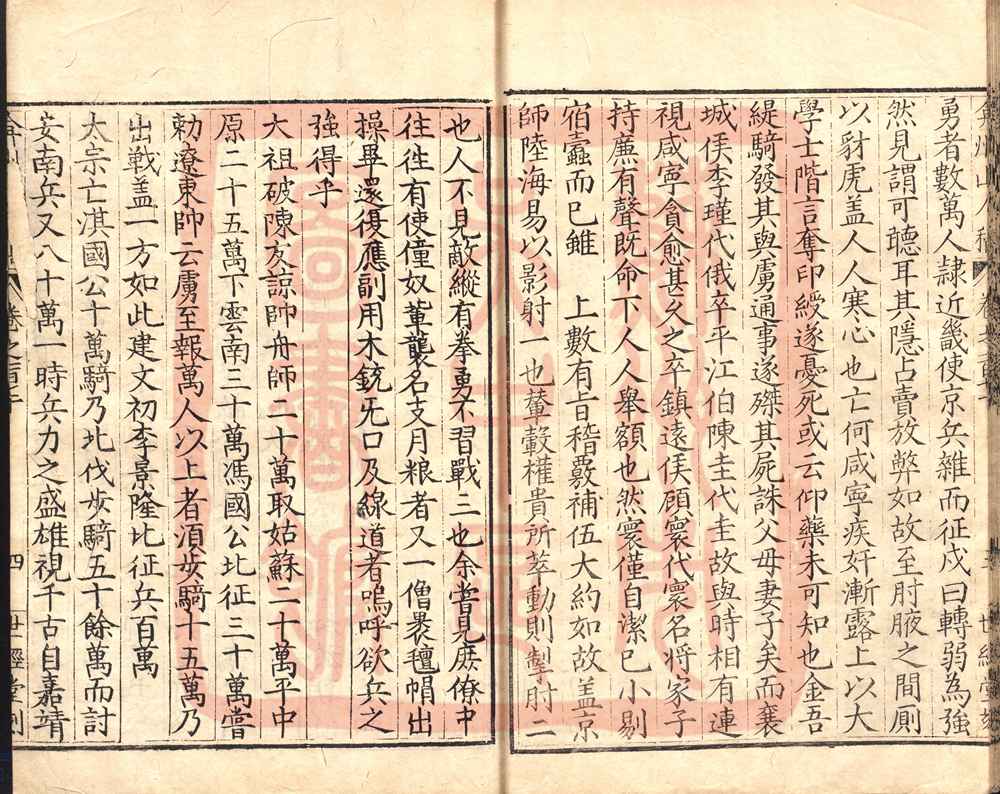 勇者數萬人隷近畿使京兵雜而征戍曰轉弱為強
然見謂可聴耳其隱占賣放弊如故至肘腋之間厠
以豺虎盖人人寒心也亡何咸寧疾奸漸露上以大
學士階言奪印綬遂憂死或云仰藥未可知也金吾
緹騎發其與虜通事遂磔其屍誅父母妻子矣而襄
城侯李瑾代俄卒平江伯陳圭代圭故與時相有連
視咸寧貪愈甚久之卒鎮遠侯顧寰代寰名将家子
持亷有聲既命下人人舉額也然寰僅自潔已小剔
宿蠹而已雖　上數有旨稽覈補伍大約如故盖京
師陸海易以影射一也輦轂權貴所萃動則掣肘二
也人不見敵縱有拳勇不習戰三也余嘗見庶僚中
往往有使僮奴軰襲名支月粮者又一僧褁氊帽出
操畢還復應副用木銃旡口及線道者嗚呼欲兵之
強得乎
大祖破陳友諒師舟師二十萬取姑蘇二十萬平中
原二十五萬下雲南三十萬馮國公北征三十萬嘗
勅遼東帥云虜至報萬人以上者湏步騎十五萬乃
出戰盖一方如此建文初李景隆北征兵百萬
太宗亡淇國公十萬騎乃北伐步騎五十餘萬而討
安南兵又八十萬一時兵力之盛雄視千古自嘉靖
四 世經堂刻